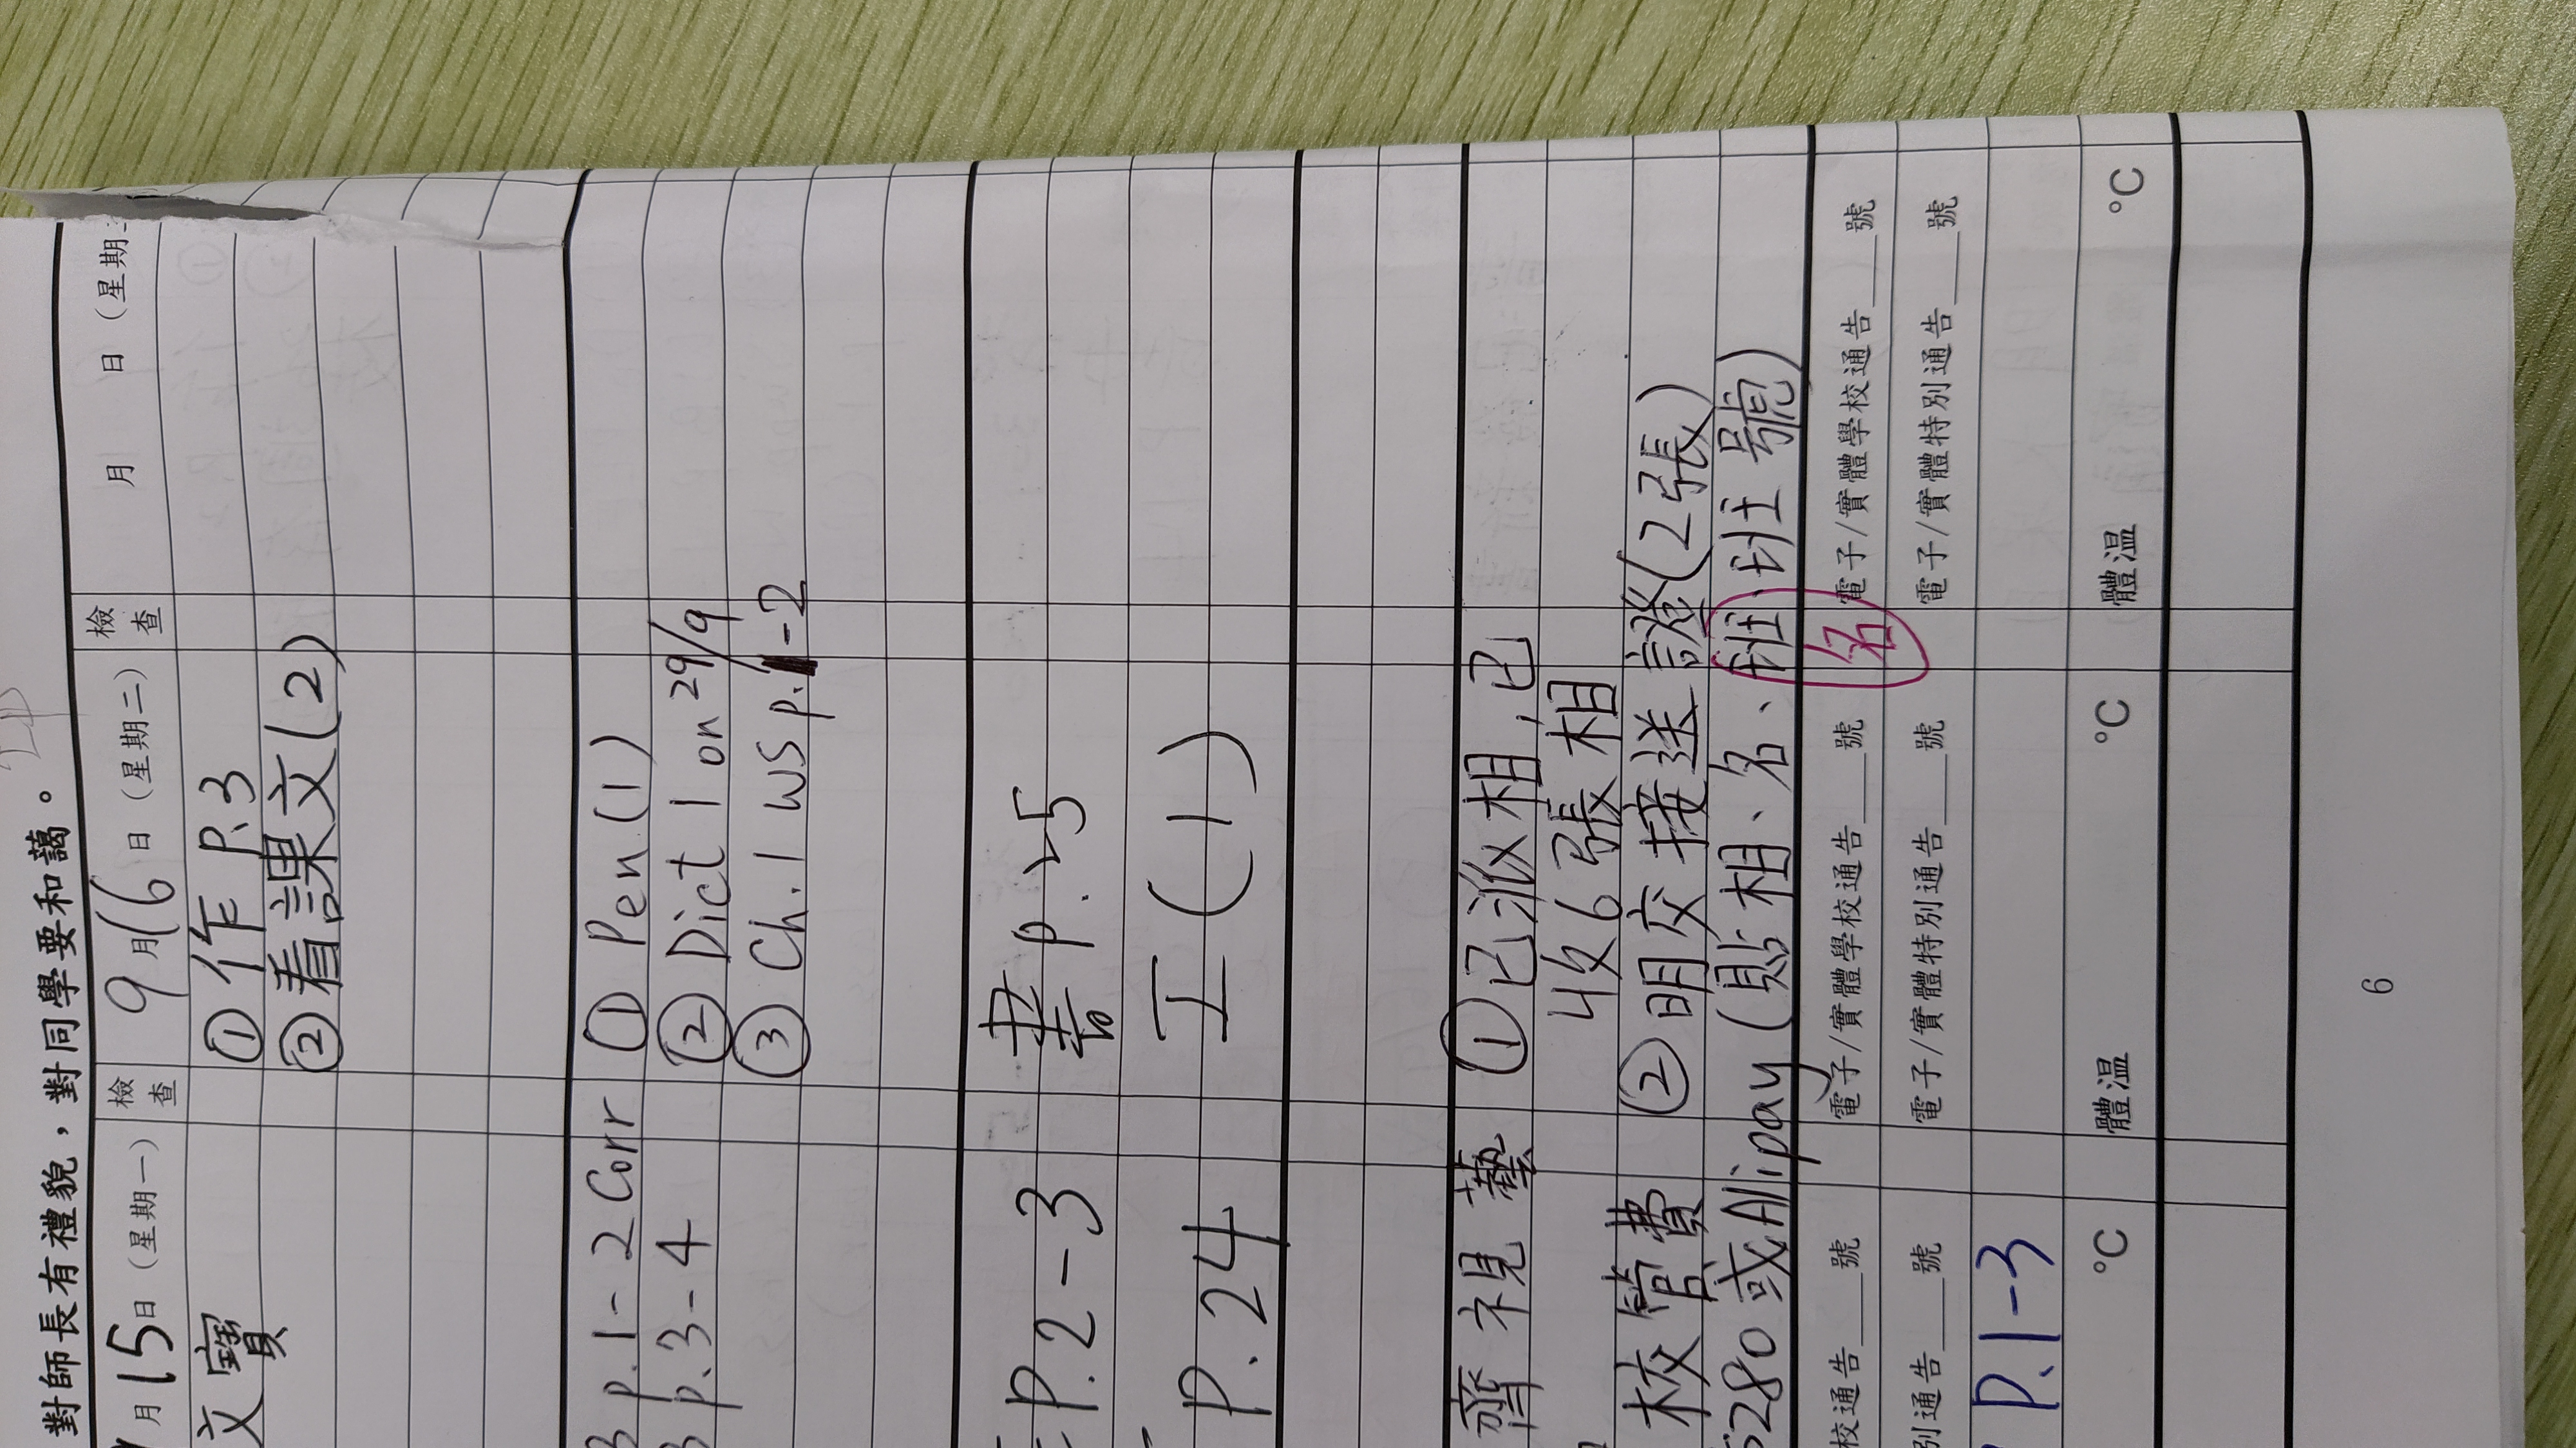 對師長有禮貌，對同學要和藹。
月15日（星期一）
檢查
文寶
p.1-2 Corr
p.3-4
P.2-3
P.24
齊視藝
校管費
5280或Alipay
校通告___號
別通告___號
P.1-3
°C
9月16日（星期二）
檢查
①作P.3
②看課文(2)
① Pen(1)
② Dict 1 on 29/9
③ Ch.1 WS p.1-2
書p.5
I(1)
①已派相,已
收6張相
②明交接送證(2張)
(貼相、名、班、班號)
名
電子/實體學校通告___號
電子/實體特別通告___號
體溫 °C
月 日（星期
電子/實體學校通告___號
電子/實體特別通告___號
體溫 °C
6